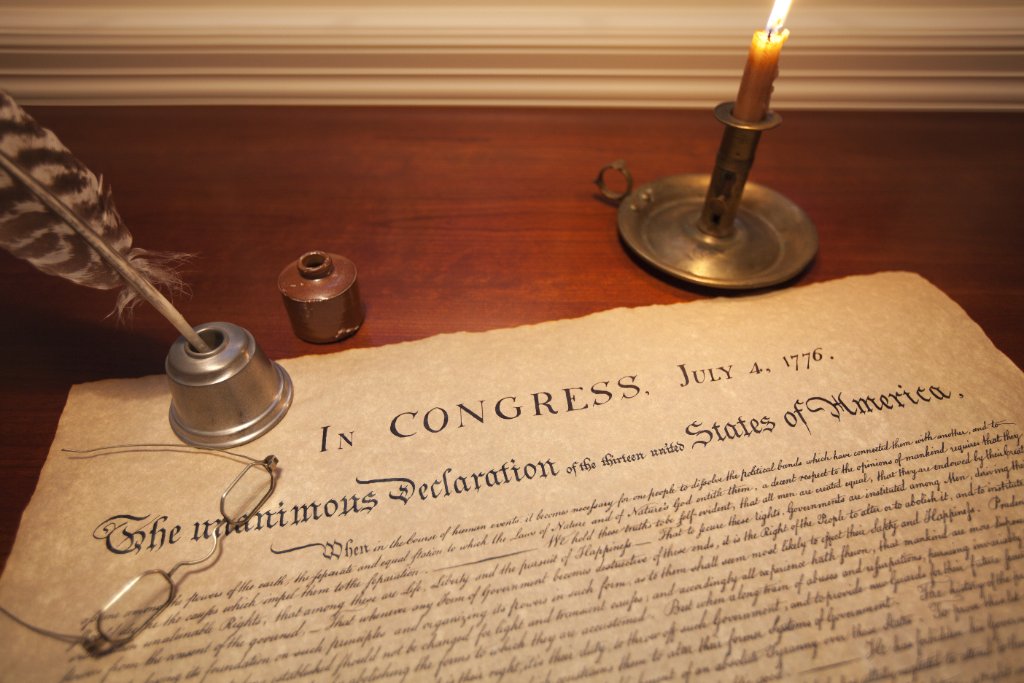 IN CONGRESS, JULY 4, 1776.
The unanimous Declaration of the thirteen united States of America,
When in the Course of human events it becomes necessary for one people to dissolve the political bands which have connected them with another, and to
of the earth, the separate and equal station to which the Laws of Nature and of Nature's God entitle them, a decent respect to the opinions of mankind requires that they
the causes which impel them to the separation. We hold these truths to be self-evident, that all men are created equal, that they are endowed by their
unalienable Rights, that among these are Life, Liberty and the pursuit of Happiness. — That to secure these rights, Governments are instituted among Men, deriving
from the consent of the governed, — That whenever any Form of Government becomes destructive of these ends, it is the Right of the People to alter or to abolish it, and to institute
its foundation on such principles and organizing its powers in such form, as to them shall seem most likely to effect their Safety and Happiness.
established should not be changed for light and transient causes; and accordingly all experience hath shewn, that mankind are more
abolishing the forms to which they are accustomed. But when a long train of abuses and usurpations, pursuing invariably
their right, it is their duty, to throw off such Government, and to provide new Guards for their future
constrains them to alter their former Systems of Government. The history of the
of an absolute Tyranny over these States. To prove this
He has forbidden his